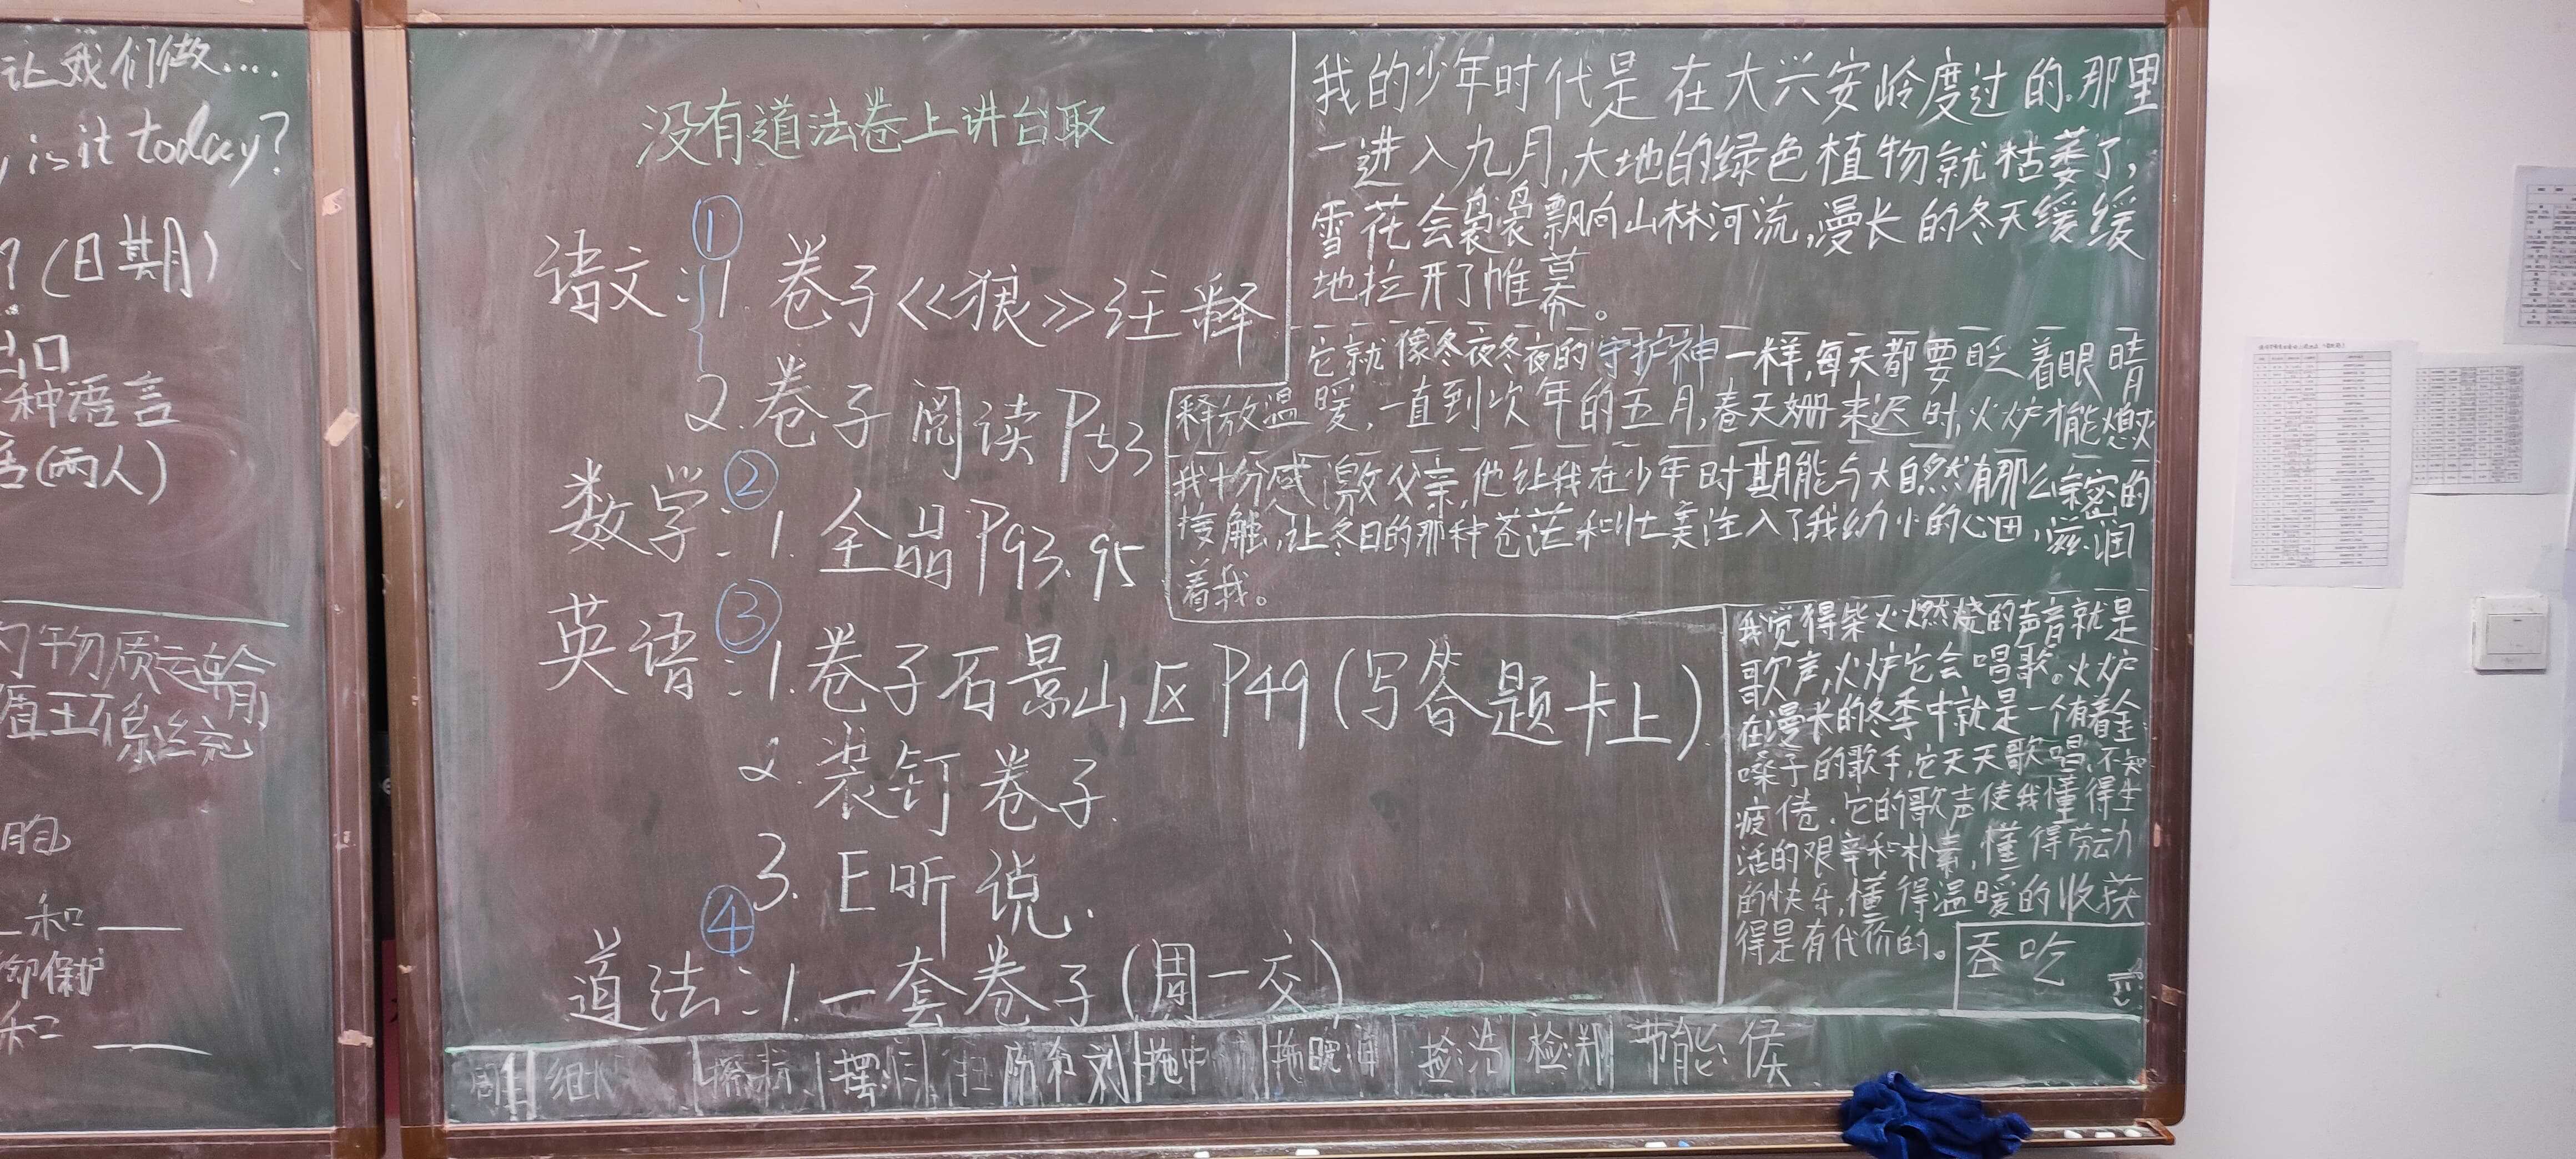 让我们做....
is it today?
(日期)
出口
种语言
(两人)
的物质运输
和
保护
和
没有道法卷上讲台取
①
语文:1.卷子《狼》注释
2.卷子阅读P53
②
数学:1.全品P93、95
③
英语:1.卷子石景山区P49(写答题卡上)
2.装钉卷子
3.E听说.
④
道法:1.一套卷子(周一交)
我的少年时代是在大兴安岭度过的.那里
一进入九月,大地的绿色植物就枯萎了,
雪花会袅袅飘向山林河流,漫长的冬天缓缓
地拉开了帷幕。
它就像冬夜冬夜的守护神一样,每天都要眨着眼睛
释放温暖,一直到次年的五月,春天姗来迟时,火炉才能熄灭
我十分感激父亲,他让我在少年时期能与大自然有那么亲密的
接触,让冬日的那种苍茫和壮美注入了我幼小的心田,滋润
着我。
我觉得柴火燃烧的声音就是
歌声,火炉它会唱歌。火炉
在漫长的冬季中就是一个有着金
嗓子的歌手,它天天歌唱,不知
疲倦.它的歌声使我懂得生
活的艰辛和朴素,懂得劳动
的快乐,懂得温暖的收获
得是有代价的。
吞吃
摆
拖中
拖晚
检
节能:侯